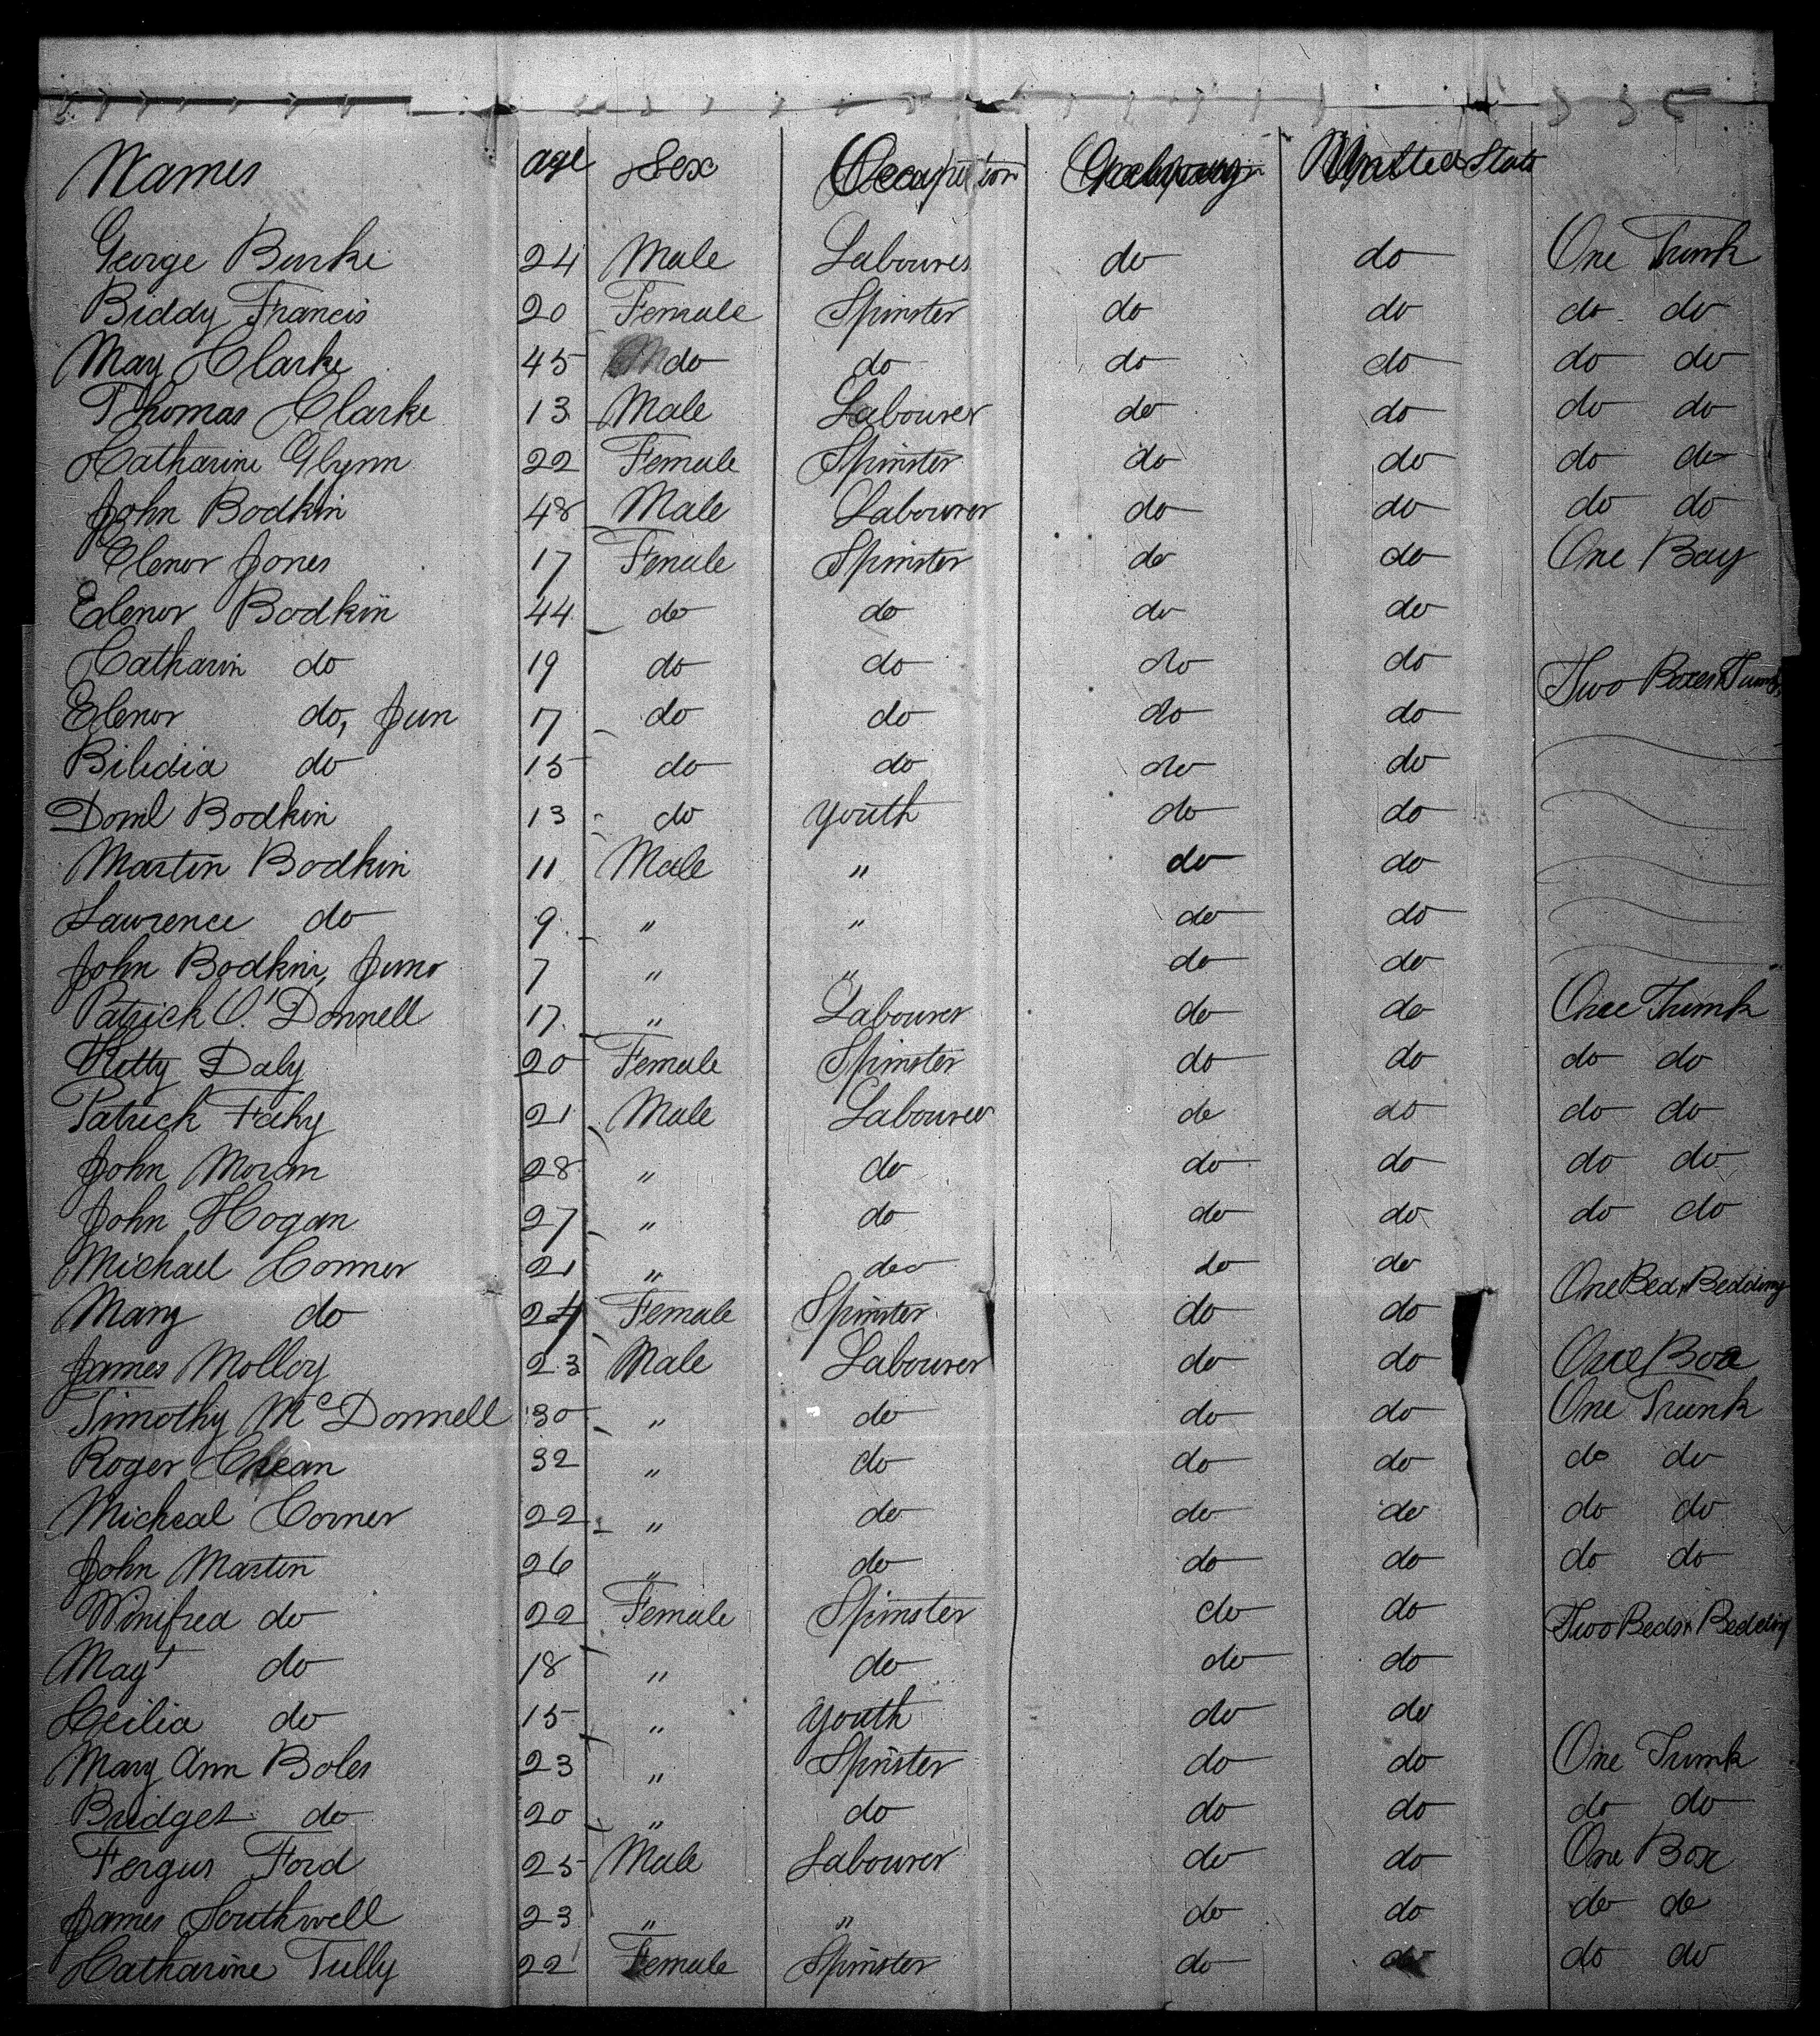 Names age Sex Occupation Galway United States
George Burke 24 Male Labourer do do One Trunk
Biddy Francis 20 Female Spinster do do do do
May Clarke 45 do do do do do do
Thomas Clarke 13 Male Labourer do do do do
Catharine Glynn 22 Female Spinster do do do do
John Bodkin 48 Male Labourer do do do do
Elenor Jones 17 Female Spinster do do One Bag
Elenor Bodkin 44 do do do do
Catharin do 19 do do do do Two Boxes & Trunk
Elenor do, Jun 17 do do do do
Biledia do 15 do do do do
Doml Bodkin 13 do youth do do
Martin Bodkin 11 Male " do do
Lawrence do 9 " " do do
John Bodkin, Junr 7 " " do do
Patrick O'Donnell 17 " Labourer do do One Trunk
Kitty Daly 20 Female Spinster do do do do
Patrick Fahy 21 Male Labourer do do do do
John Moran 28 " do do do do do
John Hogan 27 " do do do do do
Michael Connor 21 " do do do
Mary do 24 Female Spinster do do One Bed & Bedding
James Molloy 23 Male Labourer do do One Box
Timothy McDonnell 30 " do do do One Trunk
Roger 32 " do do do do do
Micheal Conner 22 " do do do do do
John Martin 26 " do do do do do
Winifred do 22 Female Spinster do do Two Beds & Bedding
May do 18 " do do do
Ceilia do 15 " youth do do
Mary Ann Boles 23 " Spinster do do One Trunk
Bridget do 20 " do do do do do
Fergus Ford 25 Male Labourer do do One Box
James Southwell 23 " " do do do do
Catharine Tully 22 Female Spinster do do do do